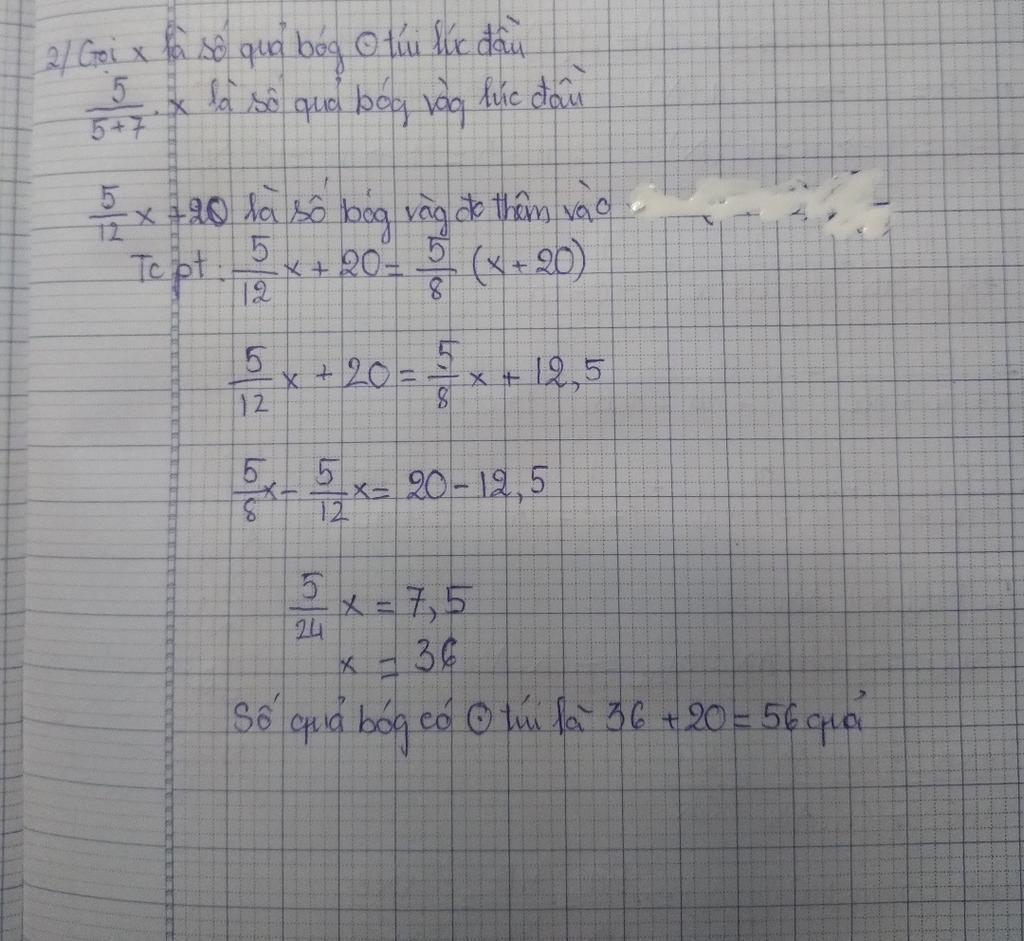 2/ Gọi x là số quả bóg ⊙ túi lúc đầu
5/(5+7) . x là số quả bóg vàg lúc đầu
5/12 x + 20 là số bóg vàg do thêm vào
Tc pt : 5/12 x + 20 = 5/8 (x + 20)
5/12 x + 20 = 5/8 x + 12,5
5/8 x - 5/12 x = 20 - 12,5
5/24 x = 7,5
x = 36
Số quả bóg có ⊙ túi là 36 + 20 = 56 quả